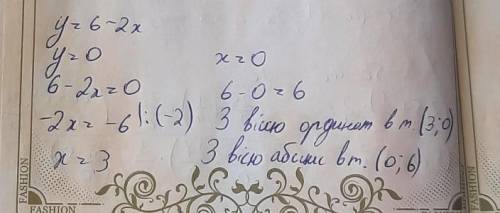 y = 6 - 2x
y = 0
6 - 2x = 0
-2x = -6 |: (-2)
x = 3
x = 0
6 - 0 = 6
З вісю ординат в т. (3; 0)
З вісю абсцис в т. (0; 6)
FASHION
FASHION
FASHION
FASHION